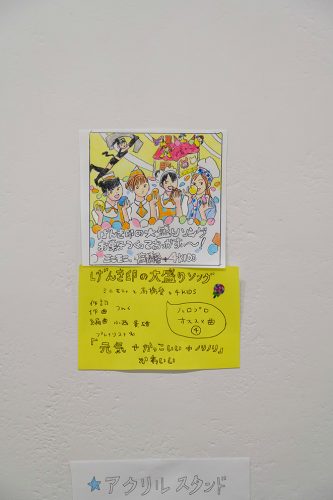 げんき印の大盛りソング
お菓子つくっておっかすぃ〜!
ミニモニ。と高橋愛+4KIDS
げんき印の大盛りソング
ミニモニ。と高橋愛+4KIDS
作詞
作曲 つんく
編曲 小西貴雄
プレイリスト
「元気 かっこいい ノリノリ」
かわいい
ハロプロ
オススメ曲
④
★アクリルスタンド